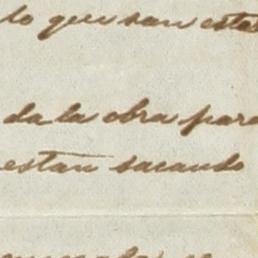 lo que san esta
da la obra para
estan sacando